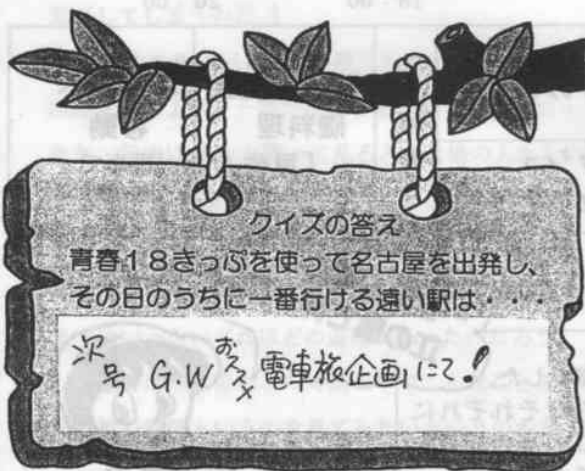 クイズの答え
青春18きっぷを使って名古屋を出発し、
その日のうちに一番行ける遠い駅は・・・
次号 G.W おススメ 電車旅企画にて!